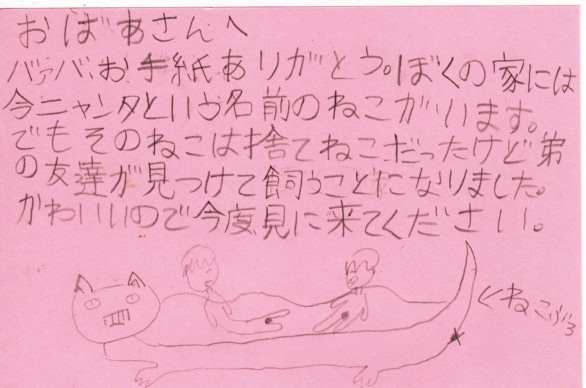 おばあさんへ
バァバ、お手紙ありがとう。ぼくの家には
今ニャンタという名前のねこがいます。
でもそのねこは捨てねこだったけど弟
の友達が見つけて飼うことになりました。
かわいいので今度見に来てください。
←ねこぶろ